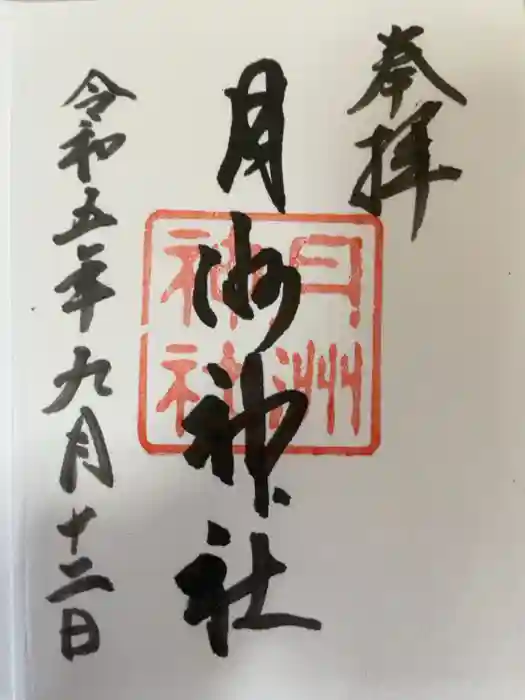 奉拝
月洲神社
月洲
神社
令和五年九月十二日